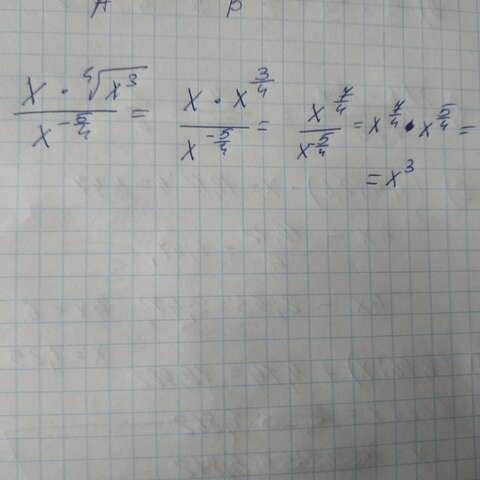 A р
x · ∜x³ / x^(-5/4) = x · x^(3/4) / x^(-5/4) = x^(7/4) / x^(-5/4) = x^(7/4) · x^(5/4) =
= x³